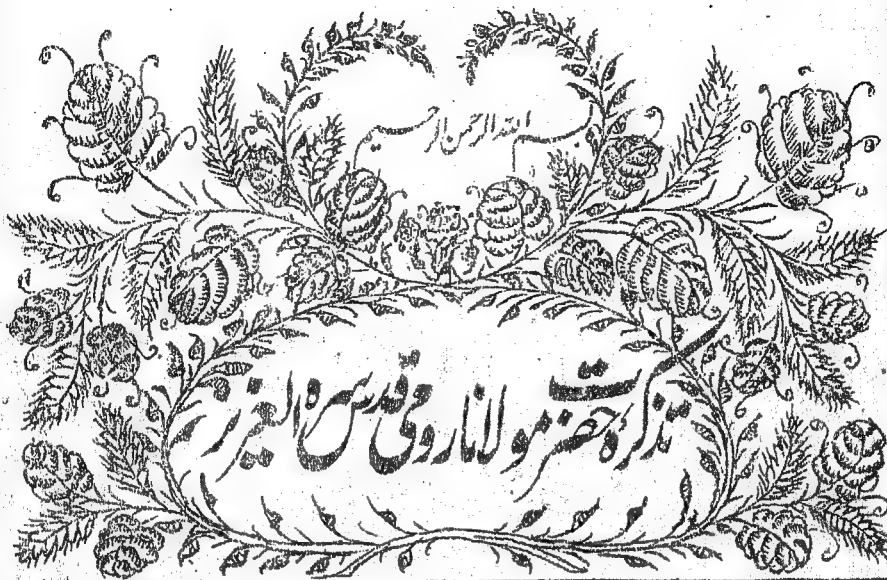 بسم الله الرحمن الرحیم
تذکرۂ حضرت مولانا رومی قدس سره العزیز